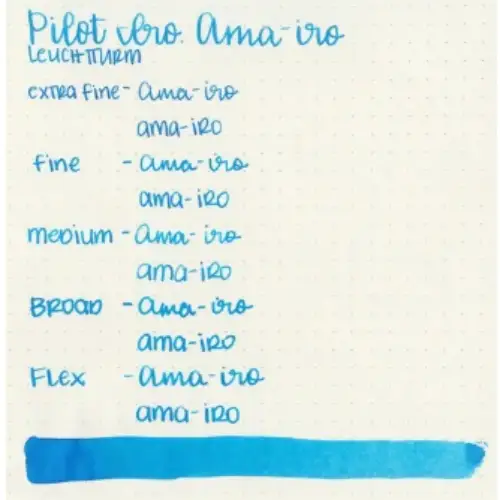 Pilot Iro. Ama-iro
LEUCHTTURM
extra fine - Ama-iro
ama-iro
fine - Ama-iro
ama-iro
medium - Ama-iro
ama-iro
BROAD - Ama-iro
ama-iro
Flex - Ama-iro
ama-iro